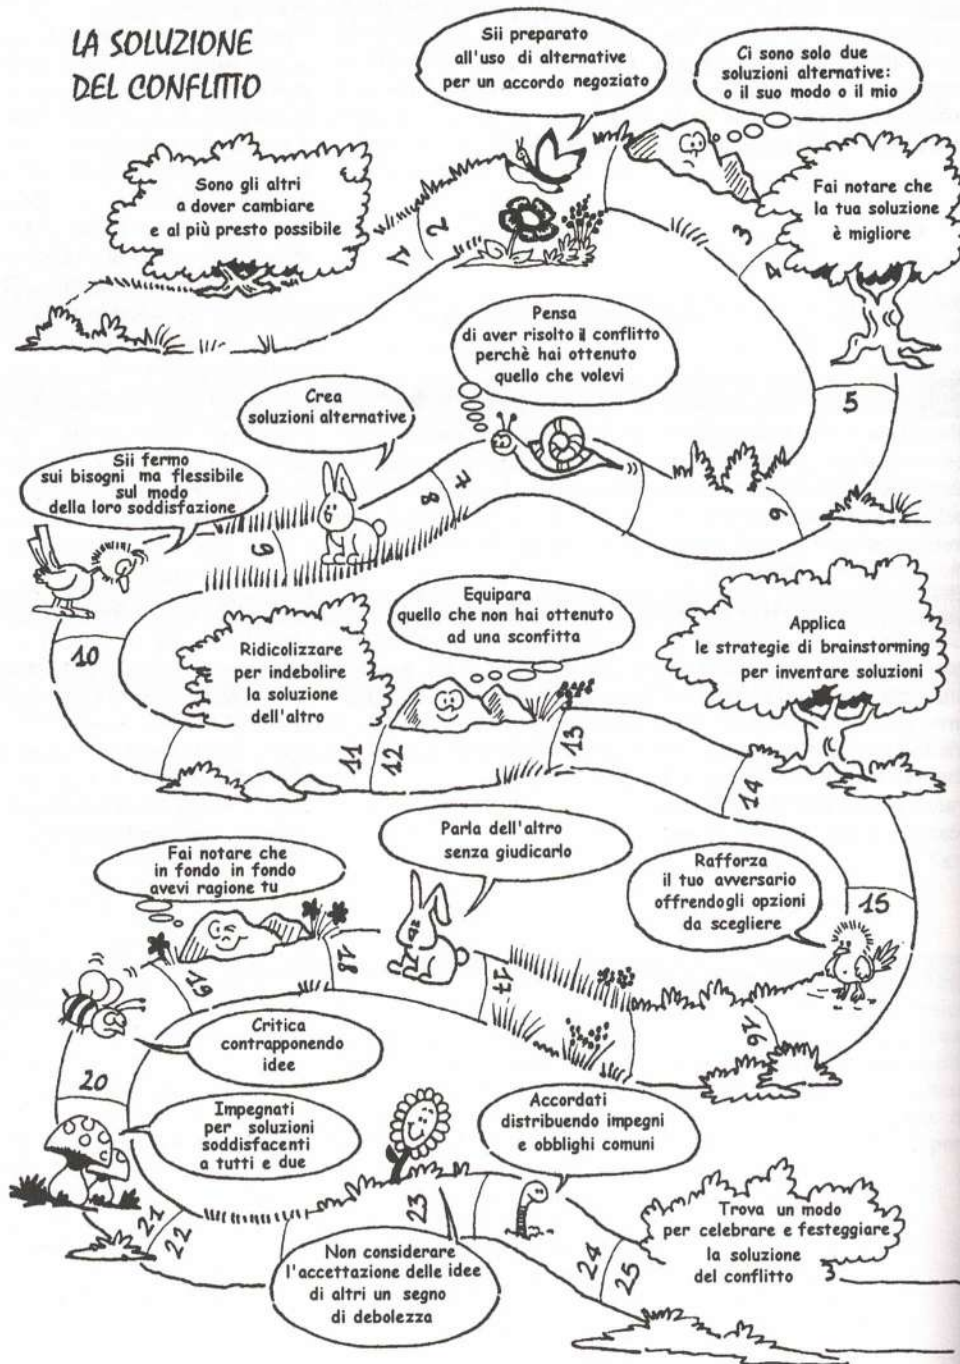 LA SOLUZIONE
DEL CONFLITTO
Sii preparato
all'uso di alternative
per un accordo negoziato
Ci sono solo due
soluzioni alternative:
o il suo modo o il mio
Sono gli altri
a dover cambiare
e al più presto possibile
Fai notare che
la tua soluzione
è migliore
1
2
3
4
Pensa
di aver risolto il conflitto
perchè hai ottenuto
quello che volevi
5
Crea
soluzioni alternative
6
7
8
Sii fermo
sui bisogni ma flessibile
sul modo
della loro soddisfazione
9
10
Ridicolizzare
per indebolire
la soluzione
dell'altro
Equipara
quello che non hai ottenuto
ad una sconfitta
Applica
le strategie di brainstorming
per inventare soluzioni
11
12
13
14
Parla dell'altro
senza giudicarlo
Fai notare che
in fondo in fondo
avevi ragione tu
Rafforza
il tuo avversario
offrendogli opzioni
da scegliere
15
16
17
18
19
Critica
contrapponendo
idee
20
Impegnati
per soluzioni
soddisfacenti
a tutti e due
Accordati
distribuendo impegni
e obblighi comuni
21
22
23
Non considerare
l'accettazione delle idee
di altri un segno
di debolezza
24
25
Trova un modo
per celebrare e festeggiare
la soluzione
del conflitto